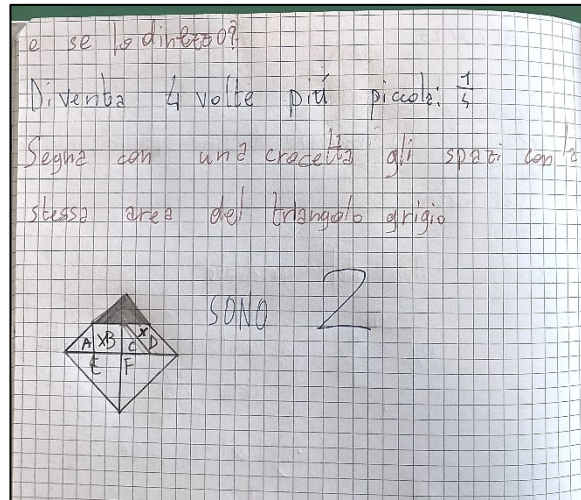 e se lo dimezzo?
Diventa 4 volte più piccola: 1/4
Segna con una crocetta gli spazi con la
stessa area del triangolo grigio
SONO 2
A X B C X D
E F